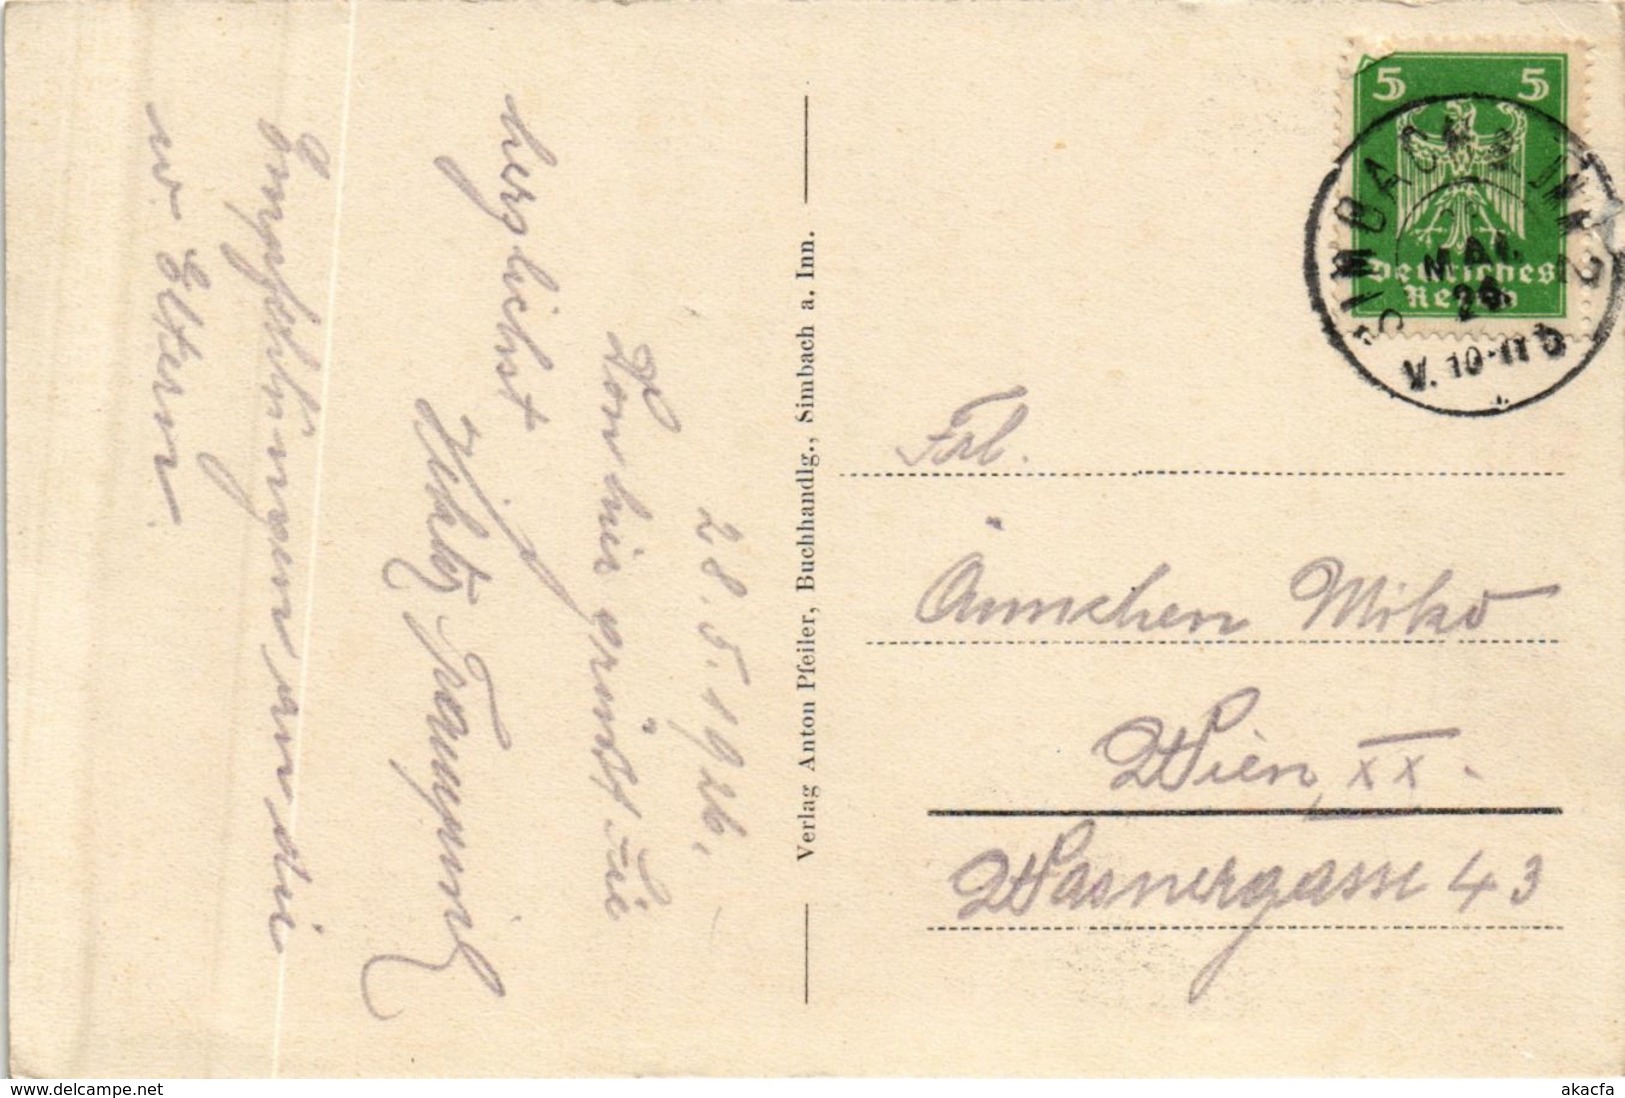 28.5.1926.
Von hier grüsst Sie
herzlichst
Empfehlungen an die
w. Eltern
Verlag Anton Pfeiler, Buchhandlg., Simbach a. Inn.
5 5
Deutsches
Reich
SIMBACH INN 2
MAI.
26.
V. 10-11
Frl.
Ännchen Miko
Wien, XX.
Wasnergasse 43
akacfa
delcampe.net